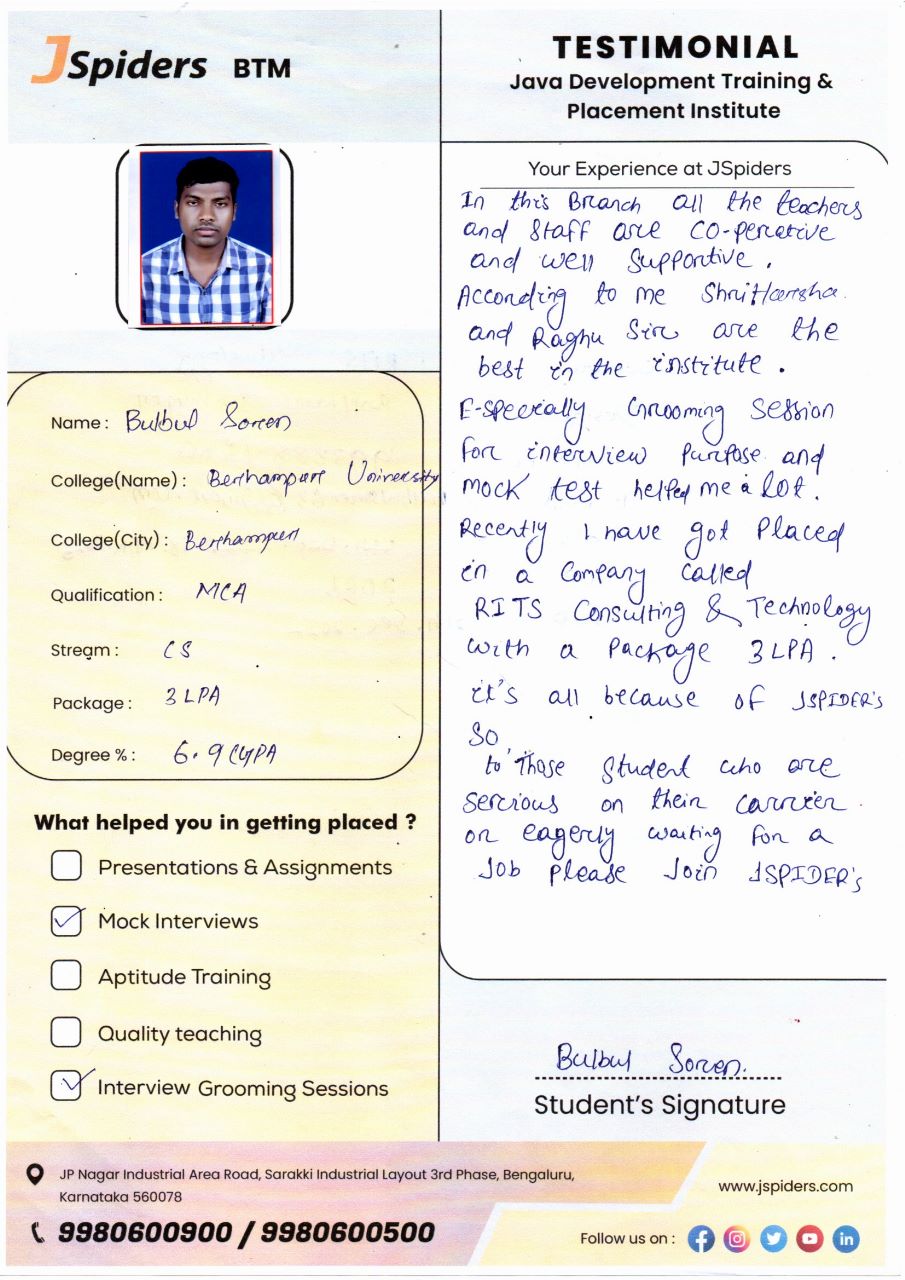 JSpiders BTM
TESTIMONIAL
Java Development Training &
Placement Institute
Name : Bulbul Soren
College(Name) : Berhampur University
College(City) : Berhampur
Qualification : MCA
Stream : CS
Package : 3 LPA
Degree % : 6.9 CGPA
What helped you in getting placed ?
Presentations & Assignments
Mock Interviews
Aptitude Training
Quality teaching
Interview Grooming Sessions
Your Experience at JSpiders
In this Branch all the teachers
and Staff are CO-perative
and well Supportive .
According to me ShriHarsha
and Raghu Sir are the
best in the institute .
E-specially Grooming Session
For interview Purpose and
mock test helped me a lot .
Recently I have got Placed
in a Company called
RITS Consulting & Technology
with a Package 3 LPA .
it's all because of JSPIDER's
So,
to Those Student who are
serious on their carrier
or eagerly waiting for a
Job Please Join JSPIDER's
Bulbul Soren.
Student's Signature
JP Nagar Industrial Area Road, Sarakki Industrial Layout 3rd Phase, Bengaluru,
Karnataka 560078
9980600900 / 9980600500
www.jspiders.com
Follow us on :